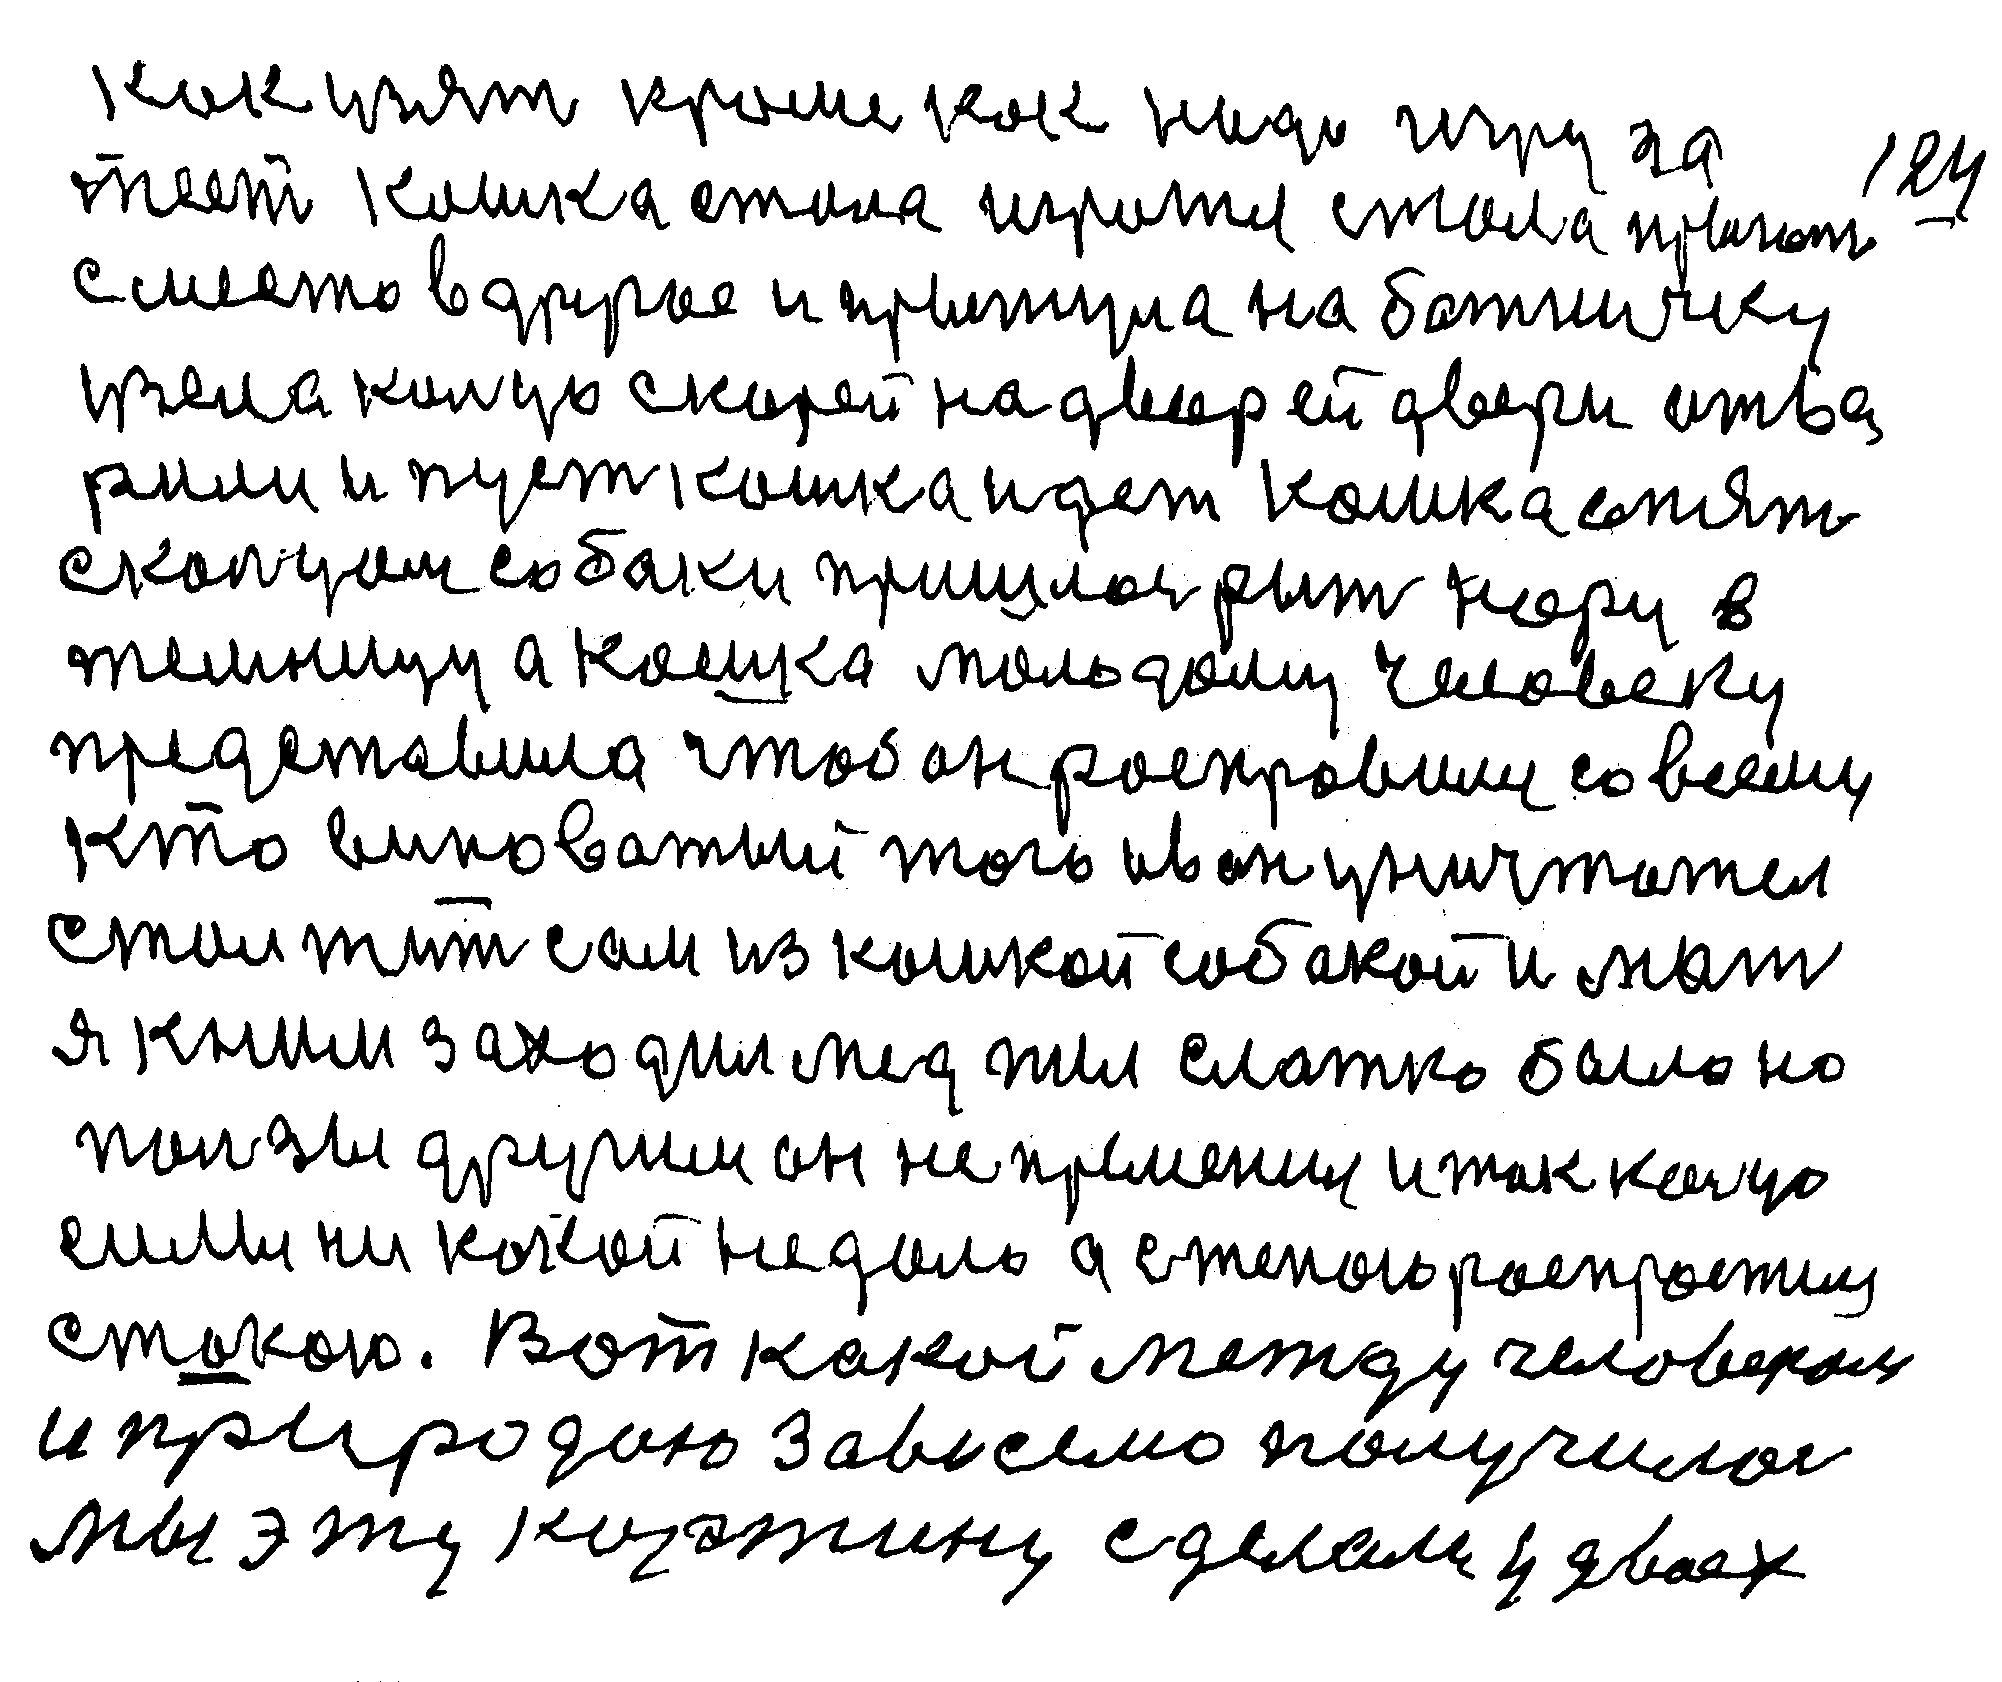 как узят кроме как надо игру за
теет кошка стала играти стала прыгат 124
сместо в другое и прыгнула на божничку
узела колцо скорей на дворей двери отва
рили и пуст кошка идет кошка опят
сколцом собаки пришлос рыт нору в
темницу а кошка мольдому человеку
представила чтоб он росправилы со всему
кто виноватый того ивон уничтожел
стал жит сам из кошкой собакой и мат
я кним заходил мед пил слатко было но
ползы другим он не пременил и так колцо
силы ни какой недало а степою роспростилы
стокою. Вот какой между человеком
и природою зависемо получилос
мы эту картину сделалы у двоех